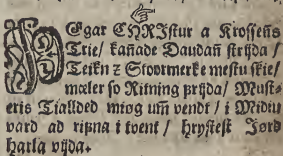 ÞEgar CHRIstur a Krossens
Trie/ kañade Daudañ strijda/
Teikn z Stoormerke mestu skie/
mæler so Ritning prijda/ Must-
eris Tiallded miog um̃ vendt/ i Midiu
vard ad rifna i tvent/ hrystest Jørd
harla vijda.